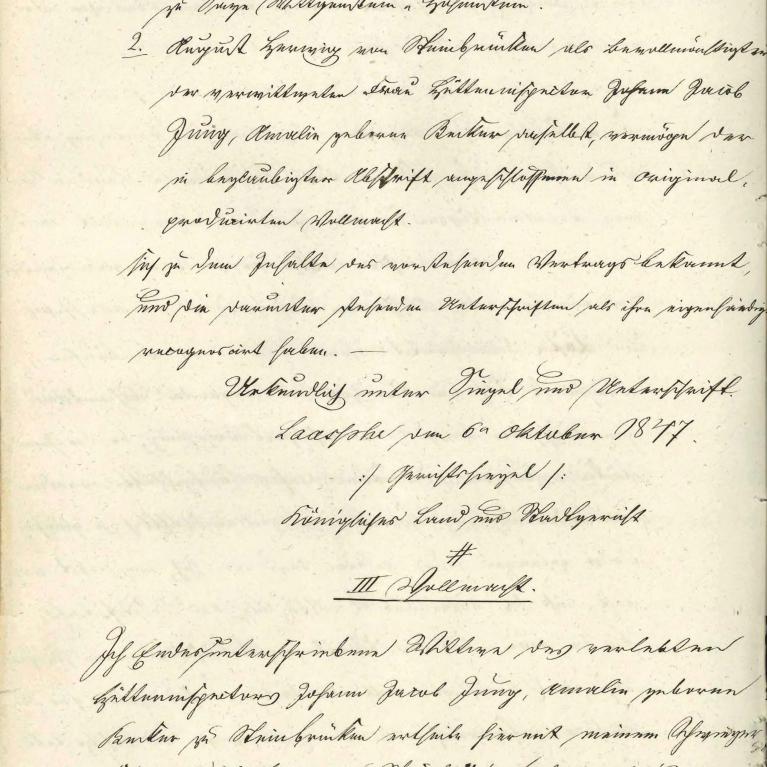 zu Sayn Wittgenstein Hohenstein.
2. August Herwig von Steinbrücken als Bevollmächtigter
der verwittweten Frau Hütteninspector Johann Jacob
Jung, Amalie geborene Becker daselbst, vermöge der
in beglaubigter Abschrift angeschlossenen in original,
produzirten Vollmacht.
sich zu dem Inhalte des vorstehenden Vertrags bekannt,
und die darunter stehenden Unterschriften als ihre eigenhändig
recognoscirt haben.
Urkundlich unter Siegel und Unterschrift.
Laasphe den 6n Oktober 1847.
:/ Gerichtssiegel /:
Königliches Land und Stadtgericht
#
III Vollmacht.
Ich Endesunterschriebene Wittwe des verlebten
Hütteninspectors Johann Jacob Jung, Amalie geborene
Becker zu Steinbrücken ertheile hiermit meinem Schwieger